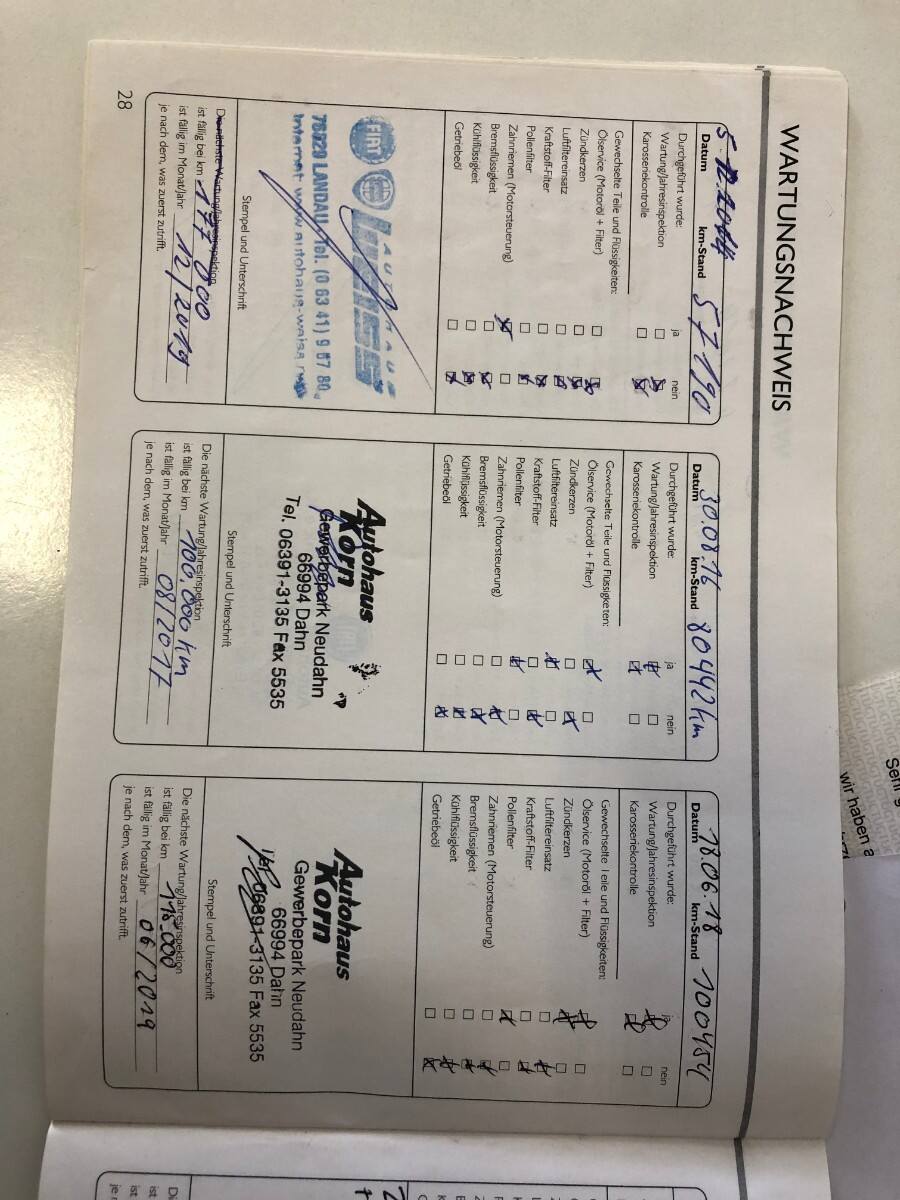 WARTUNGSNACHWEIS
Datum 5.12.2014 km-Stand 57190
Durchgeführt wurde: ja nein
Wartung/Jahresinspektion
Karosseriekontrolle
Gewechselte Teile und Flüssigkeiten:
Ölservice (Motoröl + Filter)
Zündkerzen
Luftfiltereinsatz
Kraftstoff-Filter
Pollenfilter
Zahnriemen (Motorsteuerung)
Bremsflüssigkeit
Kühlflüssigkeit
Getriebeöl
FIAT AUTOHAUS
76829 LANDAU, Tel. (0 63 41) 9 67 80
Internet www.autohaus-weiss
Stempel und Unterschrift
Die nächste Wartung/Jahresinspektion
ist fällig bei km 177000
ist fällig im Monat/Jahr 12/2019
je nach dem, was zuerst zutrifft.
Datum 30.08.16 km-Stand 80442km
Durchgeführt wurde: ja nein
Wartung/Jahresinspektion
Karosseriekontrolle
Gewechselte Teile und Flüssigkeiten:
Ölservice (Motoröl + Filter)
Zündkerzen
Luftfiltereinsatz
Kraftstoff-Filter
Pollenfilter
Zahnriemen (Motorsteuerung)
Bremsflüssigkeit
Kühlflüssigkeit
Getriebeöl
Autohaus
Korn
Gewerbepark Neudahn
66994 Dahn
Tel. 06391-3135 Fax 5535
Stempel und Unterschrift
Die nächste Wartung/Jahresinspektion
ist fällig bei km 100.000 km
ist fällig im Monat/Jahr 08/2017
je nach dem, was zuerst zutrifft.
Datum 18.06.18 km-Stand 100454
Durchgeführt wurde: ja nein
Wartung/Jahresinspektion
Karosseriekontrolle
Gewechselte Teile und Flüssigkeiten:
Ölservice (Motoröl + Filter)
Zündkerzen
Luftfiltereinsatz
Kraftstoff-Filter
Pollenfilter
Zahnriemen (Motorsteuerung)
Bremsflüssigkeit
Kühlflüssigkeit
Getriebeöl
Autohaus
Korn
Gewerbepark Neudahn
66994 Dahn
Tel. 06391-3135 Fax 5535
Stempel und Unterschrift
Die nächste Wartung/Jahresinspektion
ist fällig bei km 115.000
ist fällig im Monat/Jahr 06/2019
je nach dem, was zuerst zutrifft.
28
wir haben